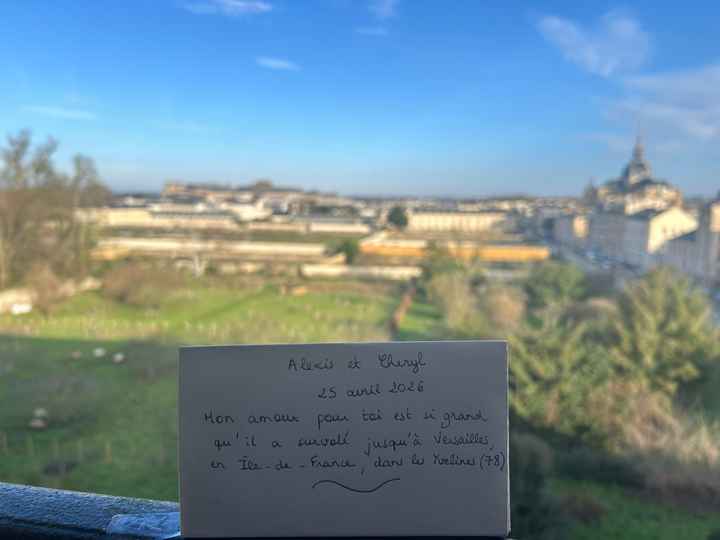 Alexis et Cheryl
25 avril 2026
Mon amour pour toi est si grand
qu'il a survolé jusqu'à Versailles,
en Île-de-France, dans les Yvelines (78)